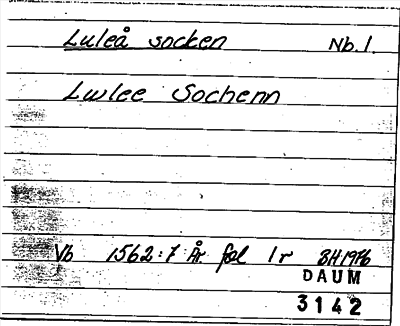 Luleå socken Nb. 1.
Lwlee Sochenn
Vb 1562:7 År fol 1 r BH 1976
DAUM
3142